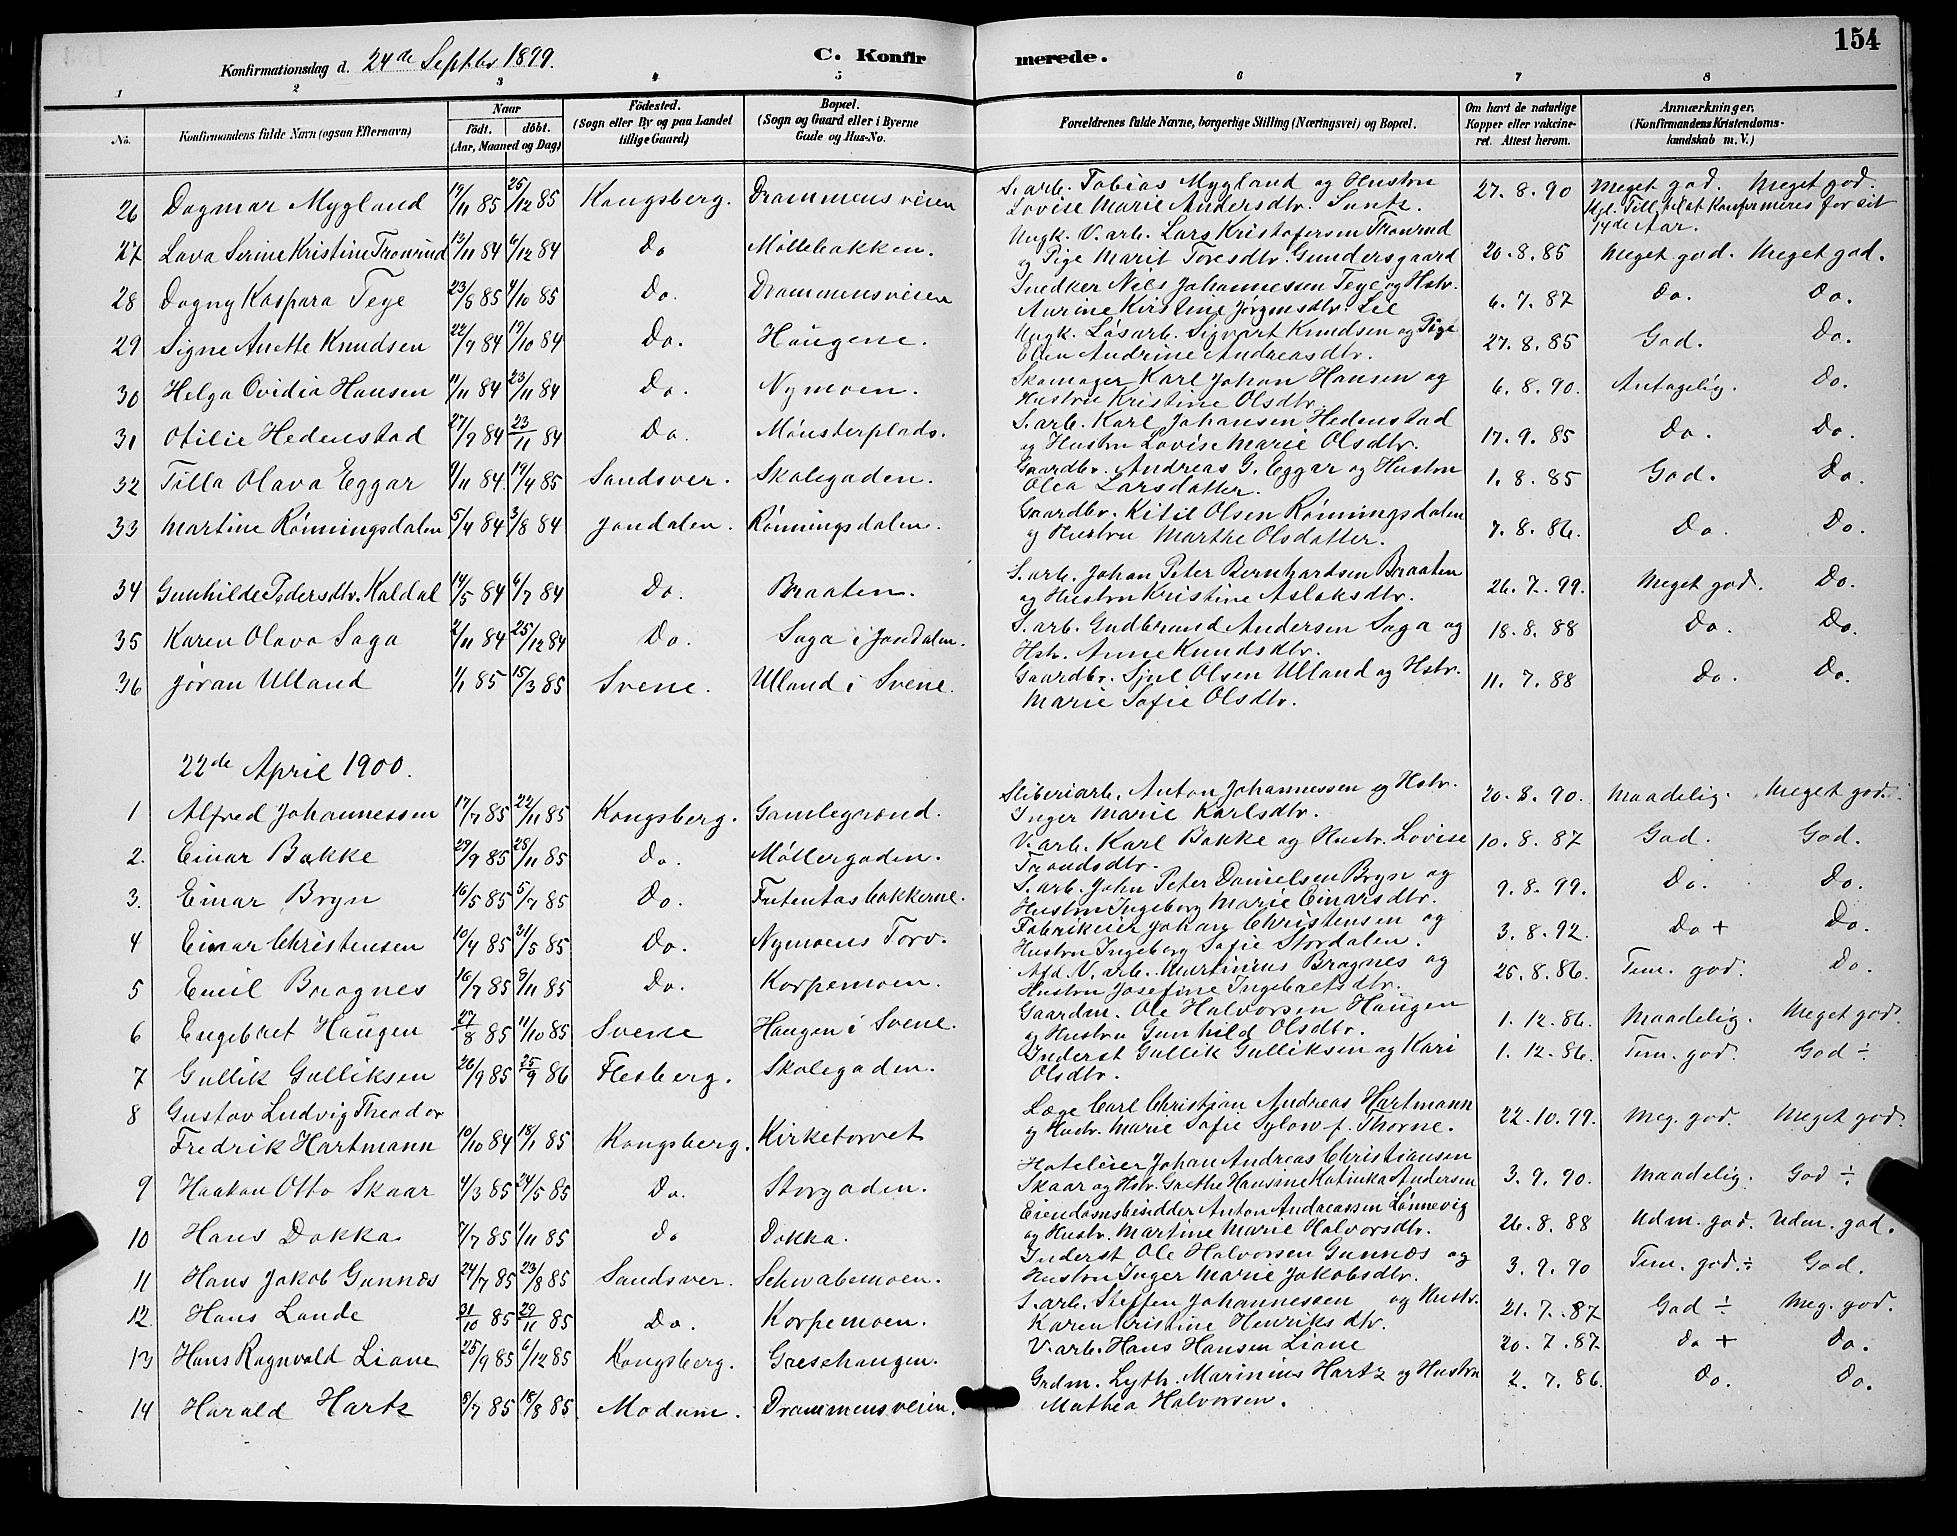 154
Konfirmationsdag d. 24de Septbr 1899.
C. Konfirmerede.
1 2 3 4 5 6 7 8
No. Konfirmandens fulde Navn (ogsaa Efternavn) Naar födt. döbt. (Aar, Maaned og Dag) Födested. (Sogn eller By og paa Landet tillige Gaard) Bopæl. (Sogn og Gaard eller i Byerne Gade og Hus-No. Forældrenes fulde Navne, borgerlige Stilling (Næringsvei) og Bopæl. Om havt de naturlige Kopper eller vakcineret. Attest herom. Anmærkninger. (Konfirmandens Kristendomskundskab m. V.)
26 Dagmar Mygland 19/11 85 25/12 85 Kongsberg. Drammensveien S. arb. Tobias Mygland og Hustru 27.8.90 Meget god. Meget god.
Lovise Marie Andersdtr. Kgl. Till. til at Konfirmeres før sit 14de Aar.
27 Lava Serine Kristine Tronrud 13/11 84 6/12 84 Do Møllebakken. Ungk. V. arb. Lars Kristofersen Tronrud
og Pige Marit Toresdtr. Gundersgaard 20.8.85 Meget god. Meget god.
28 Dagny Kaspara Tege 23/8 85 4/10 85 Do. Drammensveien Snedker Nils Johannessen Tege og Hstr.
Aurine Kristine Jørgensdtr. Lie 6.7.87 Do. Do.
29 Signe Anette Knudsen 22/9 84 19/10 84 Do. Haugene. Ungk. Løsarb. Sigvart Knudsen og Pige
Ellen Andrine Andreasdtr. 27.8.85 God. Do.
30 Helga Ovidia Hansen 11/11 84 23/11 84 Do. Nymoen. Skomager Karl Johan Hansen og
Hustru Kristine Olsdtr. 6.8.90. Antagelig. Do.
31 Otilie Hedenstad 27/9 84 23/11 84 Do. Münsterplads. S. arb. Karl Johansen Hedenstad
og Hustru Lovise Marie Olsdtr. 17.9.85 Do. Do.
32 Tilla Olava Eggar 9/11 84 19/4 85 Sandsver. Skolegaden. Gaardbr. Andreas G. Eggar og Hustru
Olea Larsdatter. 1.8.85 God. Do.
33 Martine Rønningsdalen 5/4 84 3/8 84 Jondalen. Rønningsdalen. Gaardbr. Kitil Olsen Rønningsdalen
og Hustru Marthe Olsdatter. 7.8.86. Do. Do.
34 Gunhilde Pedersdtr. Kaldal 14/5 84 6/7 84 Do. Braaten. S. arb. Johan Peter Bernhardsen Braaten
og Hustru Kristine Aslaksdtr. 26.7.99. Meget god. Do.
35 Karen Olava Saga 2/11 84 25/12 84 Do. Saga i Jondalen. S. arb. Gudbrand Andersen Saga og
Hstr. Anne Knudsdtr. 18.8.88 Do. Do.
36 Jøran Ulland 1/1 85 15/3 85 Svene. Ulland i Svene. Gaardbr. Sjul Olsen Ulland og Hstr.
Marie Sofie Olsdtr. 11.7.88 Do. Do.
22de April 1900.
1 Alfred Johannessen 17/7 85 22/11 85 Kongsberg. Gamlegrænd. Sliberiarb. Anton Johannessen og Hstr.
Inger Marie Karlsdtr. 20.8.90. Maadelig. Meget god.
2. Einar Bakke 29/9 85 28/11 85 Do. Møllergaden. V. arb. Karl Bakke og Hustr. Lovise
Trondsdtr. 10.8.87 God. God.
3. Einar Bryn 16/5 85 5/7 85 Do. Futentasbakkerne. S. arb. John Peter Danielsen Bryn og
Hustru Ingeborg Marie Einarsdtr. 9.8.99. Do. Do.
4 Einar Christensen 10/4 85 31/5 85 Do. Nymoens Torv. Fabrikeier Johan Christensen og
Hustru Ingeborg Sofie Stordalen. 3.8.92. Do + Do.
5 Emil Bragnes 16/7 85 8/11 85 Do. Korpemoen. Afd. V. arb. Martinius Bragnes og
Hustru Josefine Ingebretsdtr. 25.8.86. Tem. god. Do.
6 Engebret Haugen 27/8 85 11/10 85 Svene Haugen i Svene. Gaardm. Ole Halvorsen Haugen
og Hustru Gunhild Olsdtr. 1.12.86. Maadelig. Meget god.
7 Gullik Gulliksen 26/9 85 25/9 86 Flesberg. Skolegaden. Inderst Gullik Gulliksen og Kari
Olsdtr. 1.12.86. Tem. god. God ÷
8 Gustav Ludvig Theodor
Fredrik Hartmann 10/10 84 18/1 85 Kongsberg. Kirketorvet Læge Carl Christian Andreas Hartmann
og Hustr. Marie Sofie Sylow f. Thorne. 22.10.99. Meg. god. Meget god.
9 Haakon Otto Skaar 4/3 85 24/5 85 Do. Storgaden. Hoteleier Johan Andreas Christiansen
Skaar og Hstr. Grethe Hansine Katinka Andersen 3.9.90. Maadelig. God ÷
10 Hans Dokka 7/7 85 1/11 85 do Dokka. Eiendomsbesidder Anton Andreassen Lønnevig
og Hustr. Martine Marie Halvorsdtr. 26.8.88 Udm. god. Udm. god.
11 Hans Jakob Gunnæs 24/7 85 23/8 85 Sandsver. Schwabemoen. Inderst Ole Halvorsen Gunnæs og
Hustru Inger Marie Jakobsdtr. 3.9.90 Tem. god. ÷ God.
12 Hans Lande 31/10 85 29/11 85 Do. Korpemoen. S. arb. Steffen Johannessen og Hustr.
Karen Kristine Henriksdtr. 21.7.87 God ÷ Meg. god.
13 Hans Ragnvald Liane 25/9 85 6/12 85 Kongsberg. Gaasehaugen. V. arb. Hans Hansen Liane 20.7.87 Do + Do.
14 Harald Hartz 8/7 85 18/8 85 Modum. Drammensveien. Grdm. Lyth. Marinius Hartz og Hustru
Mathea Halvorsen. 2.7.86. Do. Do.